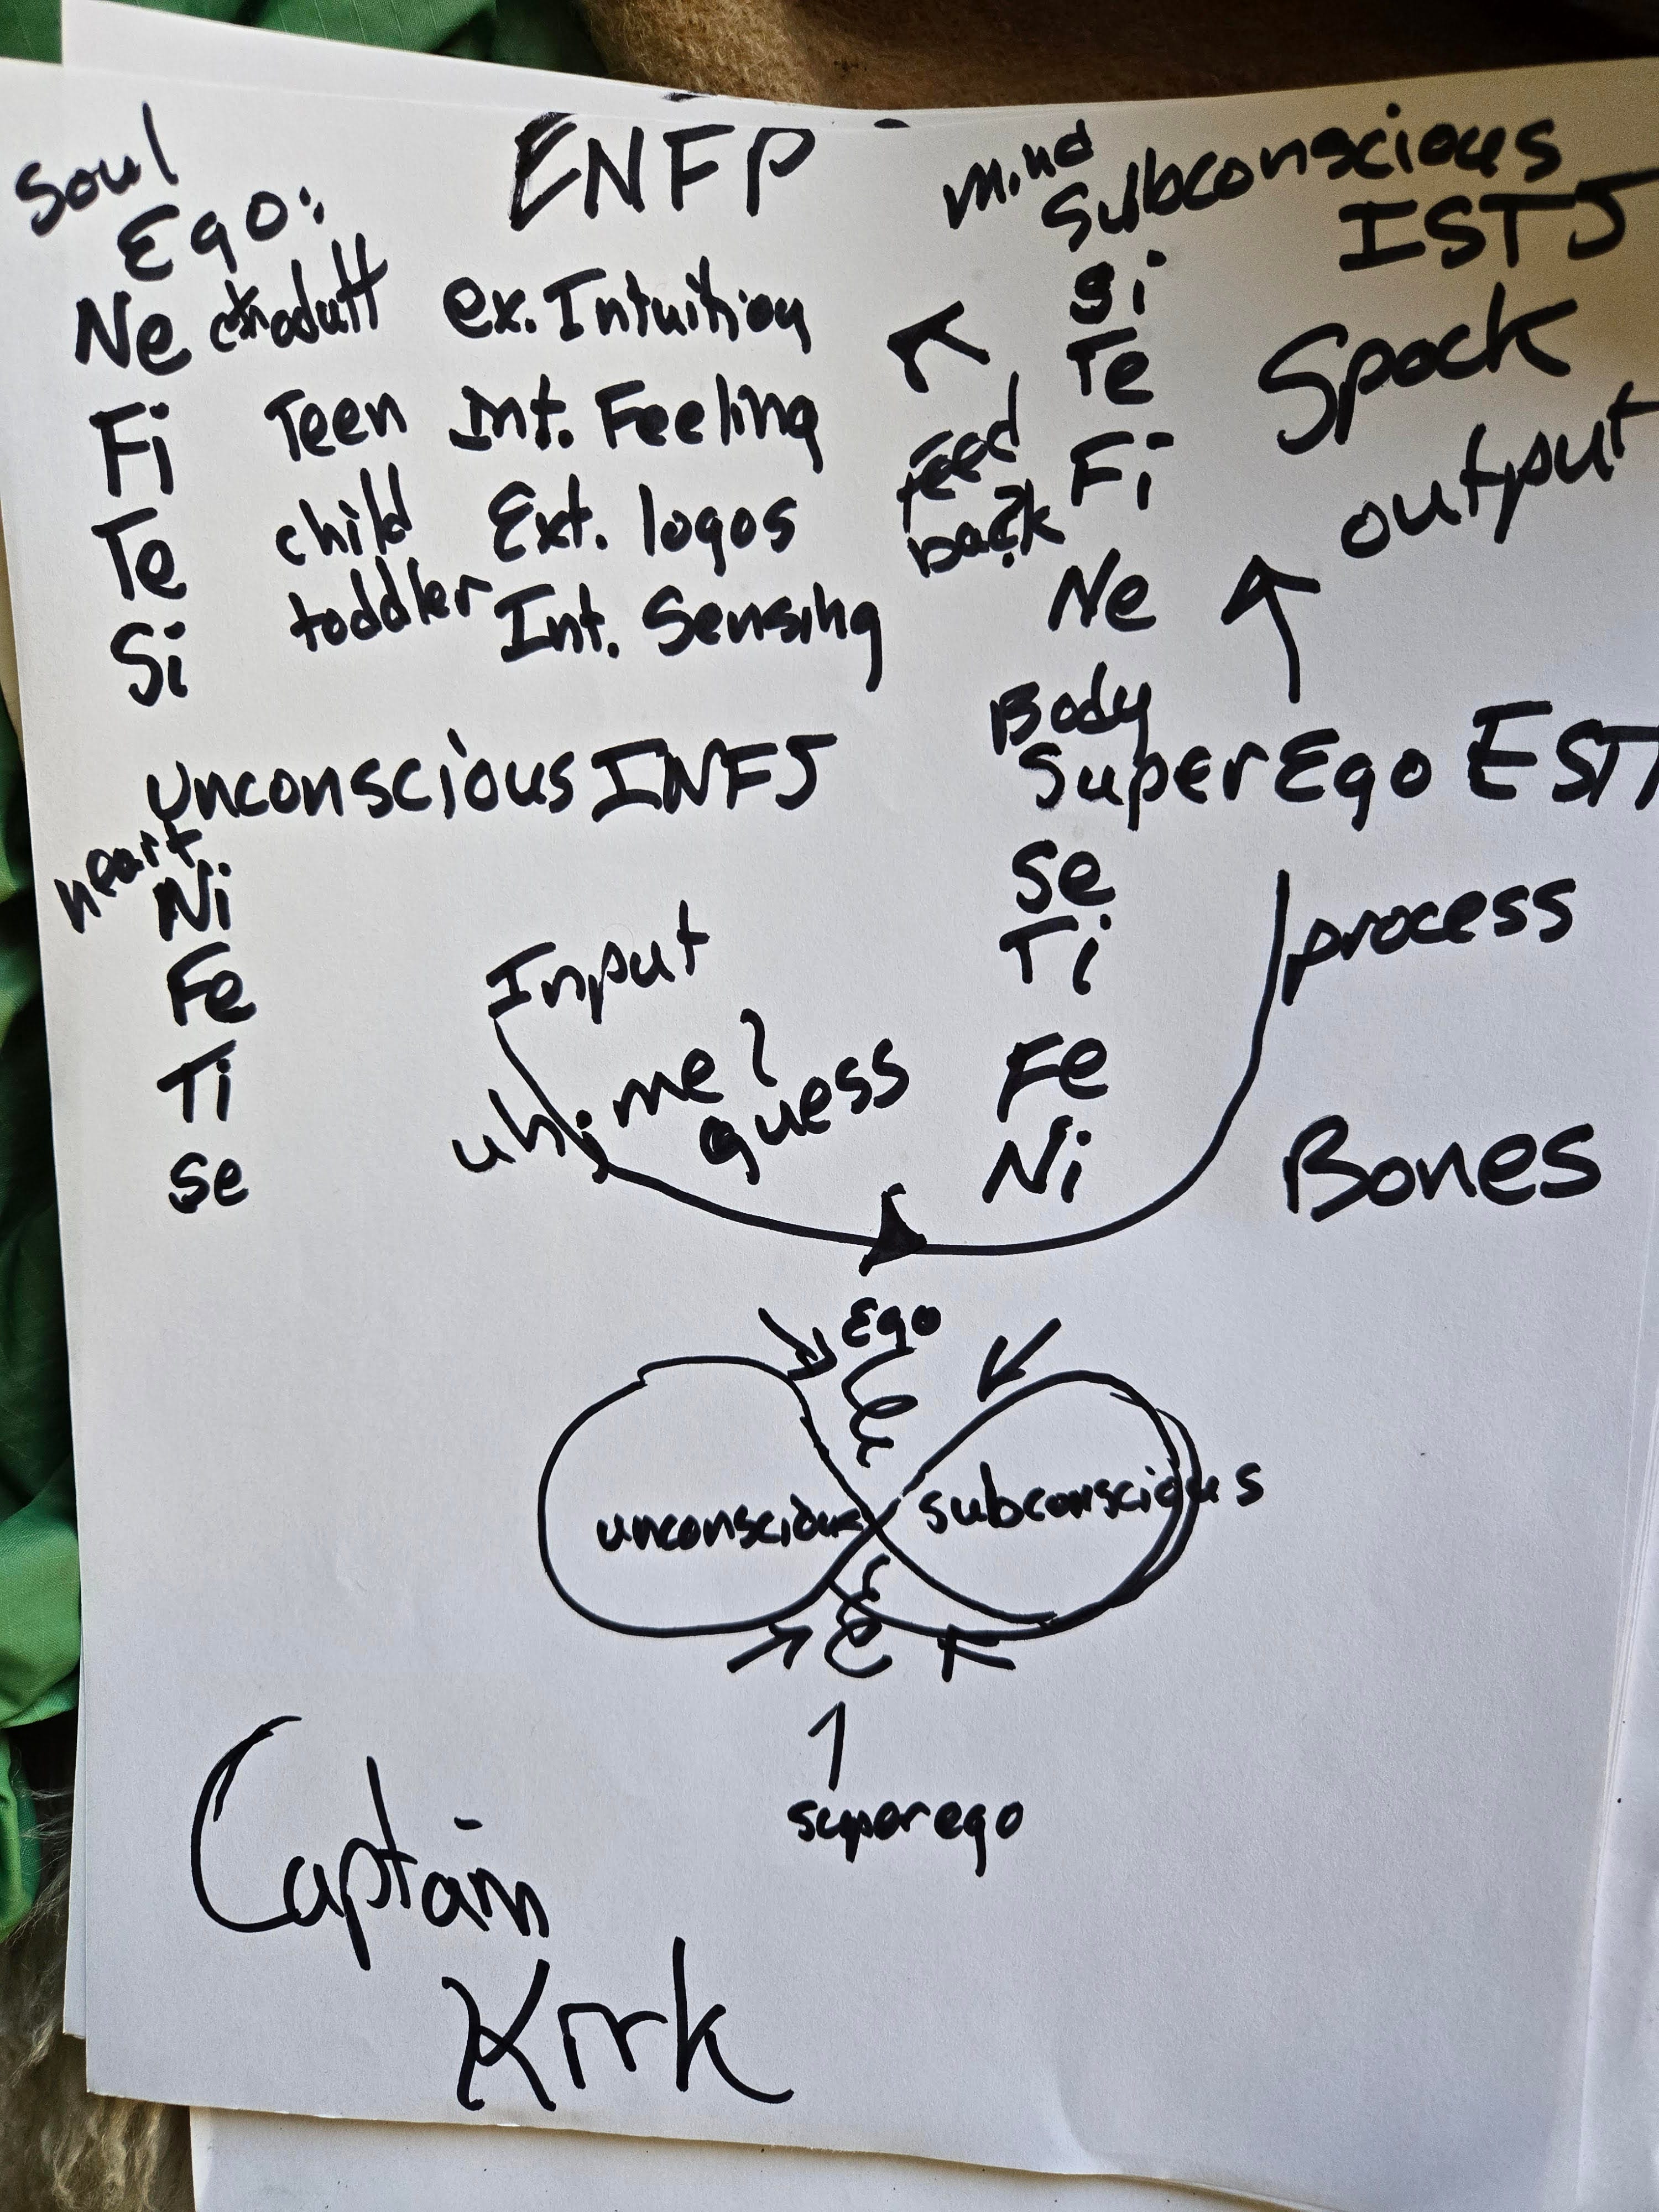 ENFP
Soul
Ego:
Ne adult ex. Intuition
Fi Teen Int. Feeling
Te child Ext. logos
Si toddler Int. Sensing
Mind
Subconscious
ISTJ
Si
Te
Fi
Ne
Spock
feed
back
output
unconscious INFJ
heart
Ni
Fe
Ti
Se
Input
uh; me?
guess
Body
SuperEgo
Se
Ti
Fe
Ni
process
Bones
Ego
unconscious
subconscious
superego
Captain
Kirk